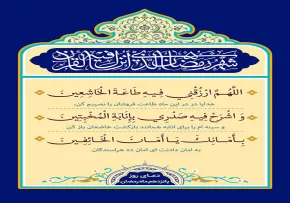 شهر رمضان الذی انزل فیه القرآن
اللَّهُمَّ ارْزُقْنِي فِيهِ طَاعَةَ الْخَاشِعِينَ
خدایا در این ماه طاعت فروتنان را نصیبم کن،
وَ اشْرَحْ فِيهِ صَدْرِي بِإِنَابَةِ الْمُخْبِتِينَ
و سینه ام را برای انابه همانند بازگشت خاضعان باز کن
بِأَمَانِكَ يَا أَمَانَ الْخَائِفِينَ
به امان دادنت ای امان ده هراسندگان.
دعای روز
پانزدهم ماه رمضان